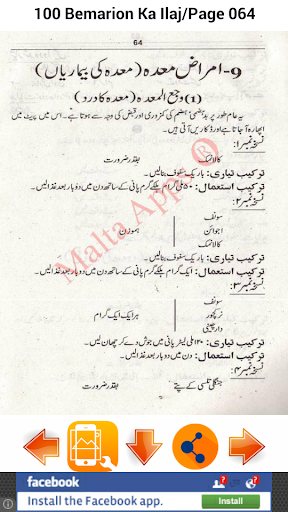 100 Bemarion Ka Ilaj/Page 064
64
9-امراض معدہ (معدہ کی بیماریاں)
(1) وجع المعدہ (معدہ کا درد)
یہ عام طور پر بدہضمی، ہضم کی کمزوری اور قبض کی وجہ سے ہوتا ہے۔ اس میں پیٹ میں
اپھارہ آ جاتا ہے اور ڈکاریں آتی ہیں۔
نسخہ نمبر۱:
کالا نمک بقدر ضرورت
ترکیب تیاری: باریک سفوف بنالیں۔
ترکیب استعمال: ہلکے گرم پانی کے ساتھ دن میں دو بار بعد غذا لیں۔
نسخہ نمبر۲:
سونف
اجوائن ہموزن
کالا نمک
ترکیب تیاری: باریک سفوف بنالیں۔
ترکیب استعمال: ایک گرام ہلکے گرم پانی کے ساتھ دن میں دو بار بعد غذا لیں۔
نسخہ نمبر۳:
سونف
نرکچور ہر ایک ایک گرام
دارچینی
ترکیب تیاری: ۱۲۰ ملی لیٹر پانی میں جوش دے کر چھان لیں۔
ترکیب استعمال: دن میں دو بار بعد غذا لیں۔
نسخہ نمبر۴:
جنگلی تلسی کے پتے بقدر ضرورت
Malta Apps ®
facebook
Install the Facebook app.
Install